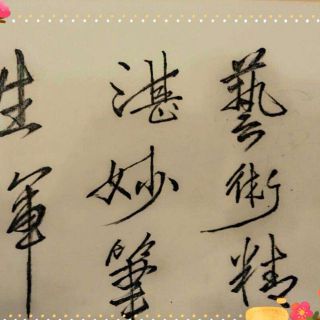 藝術精
湛妙筆
生軍